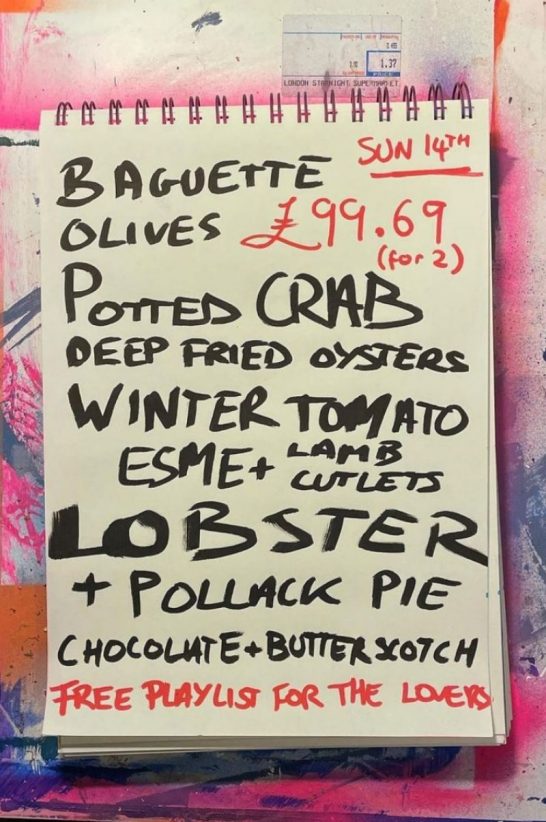 1.37
PRICE
LONDON STARNIGHT SUPERMARKET
SUN 14TH
BAGUETTE
OLIVES £99.69
(for 2)
POTTED CRAB
DEEP FRIED OYSTERS
WINTER TOMATO
ESME + LAMB
CUTLETS
LOBSTER
+ POLLACK PIE
CHOCOLATE + BUTTERSCOTCH
FREE PLAYLIST FOR THE LOVERS